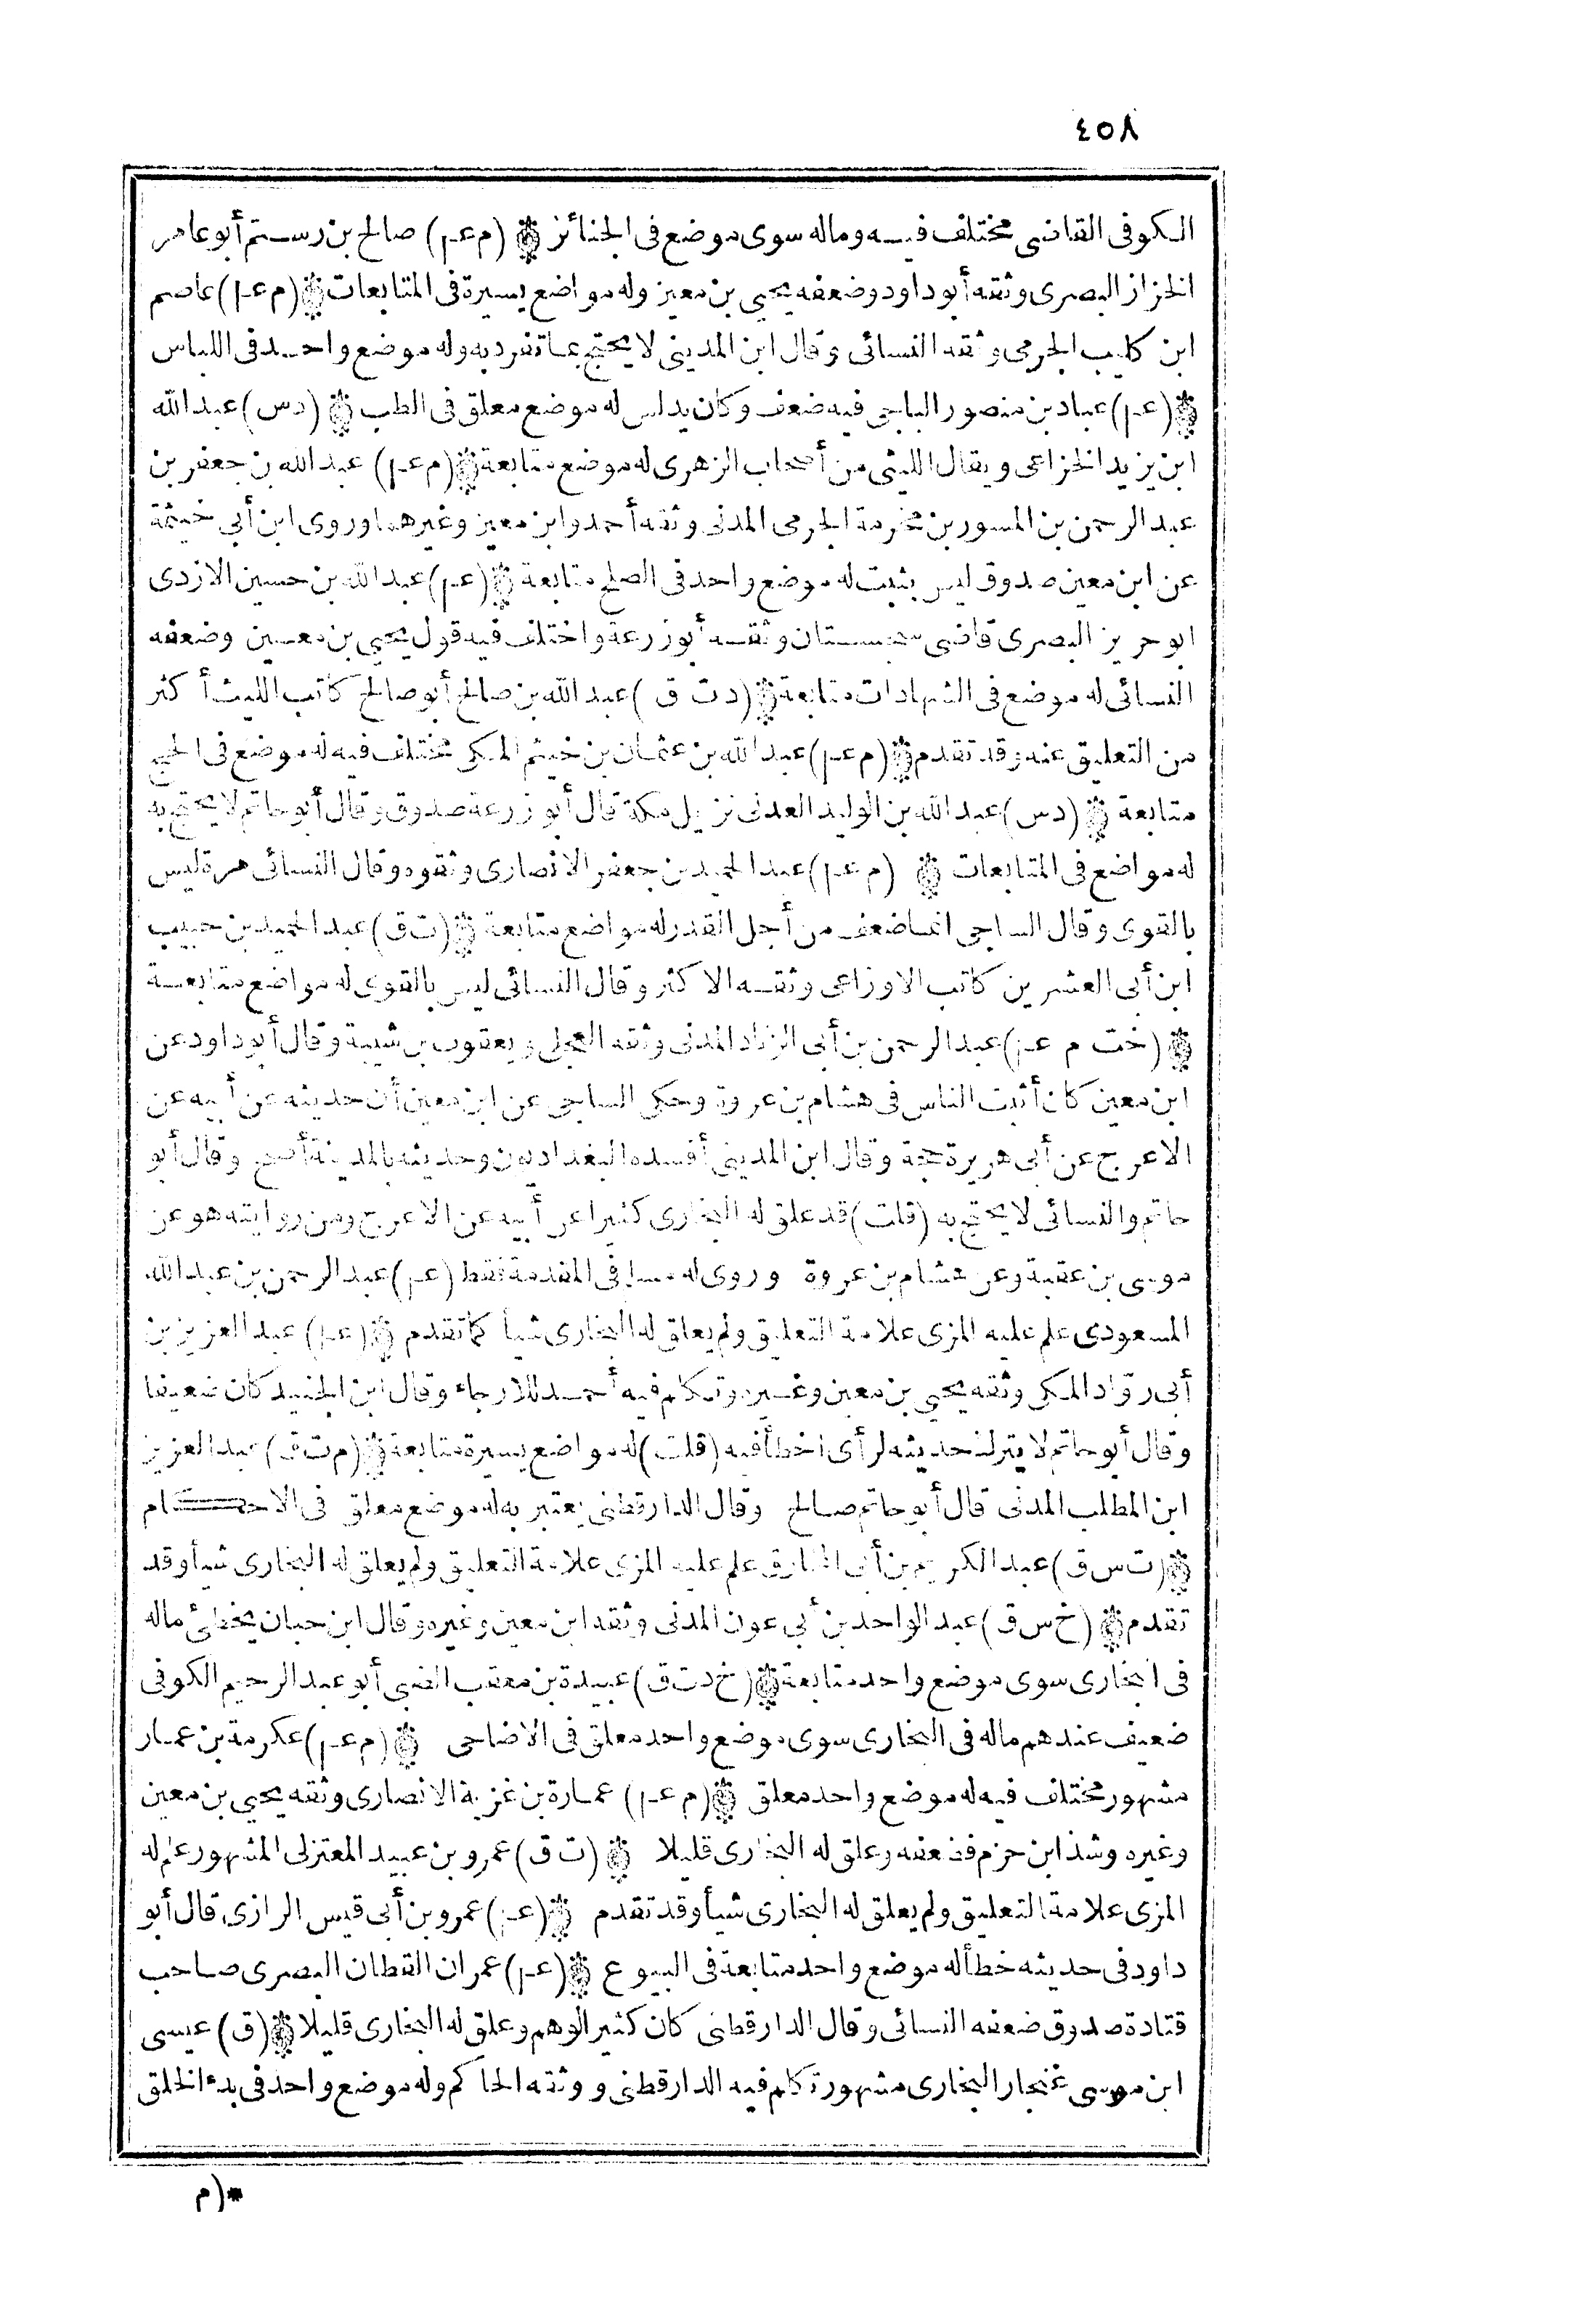 ٤٥٨
الكوفى القاضى مختلف فيه وماله سوى موضع فى الجنائز (م عـ) صالح بن رستم أبو عامر
الخزاز البصرى وثقه أبو داود وضعفه يحيى بن معين وله مواضع يسيرة فى المتابعات (م عـ) عاصم
ابن كليب الجرمى وثقه النسائى وقال ابن المدينى لا يحتج بما تفرد به وله موضع واحد فى اللباس
(عـ) عباد بن منصور الباجى فيه ضعف وكان يدلس له موضع معلق فى الطب (دس) عبد الله
ابن يزيد الخزاعى ويقال الليثى من أصحاب الزهرى له موضع متابعة (م عـ) عبد الله بن جعفر بن
عبد الرحمن بن المسور بن مخرمة الجرمى المدنى وثقه أحمد وابن معين وغيرهما وروى ابن أبى خيثمة
عن ابن معين صدوق ليس بثبت له موضع واحد فى الصلح متابعة (عـ) عبد الله بن حسين الازدى
ابو حريز البصرى قاضى سجستان وثقه أبو زرعة واختلف فيه قول يحيى بن معين وضعفه
النسائى له موضع فى الشهادات متابعة (دت ق) عبد الله بن صالح أبو صالح كاتب الليث أكثر
من التعليق عنه وقد تقدم (م عـ) عبد الله بن عثمان بن خيثم المكى مختلف فيه له موضع فى الحج
متابعة (دس) عبد الله بن الوليد العدنى نزيل مكة قال أبو زرعة صدوق وقال أبو حاتم لا يحتج به
له مواضع فى المتابعات (م عـ) عبد الحميد بن جعفر الانصارى وثقوه وقال النسائى مرة ليس
بالقوى وقال الساجى انما ضعف من أجل القدر له مواضع متابعة (ت ق) عبد الحميد بن حبيب
ابن أبى العشرين كاتب الاوزاعى وثقه الاكثر وقال النسائى ليس بالقوى له مواضع متابعة
(خت م عـ) عبد الرحمن بن أبى الزناد المدنى وثقه العجلى ويعقوب بن شيبة وقال أبو داود عن
ابن معين كان أثبت الناس فى هشام بن عروة وحكى الساجى عن ابن معين أن حديثه عن أبيه عن
الاعرج عن أبى هريرة حجة وقال ابن المدينى أفسده البغداديون وحديثه بالمدينة أصح وقال أبو
حاتم والنسائى لا يحتج به (قلت) قد علق له البخارى كثيرا عن أبيه عن الاعرج ومن روايته هو عن
موسى بن عقبة وعن هشام بن عروة وروى له مسلم فى المقدمة فقط (عـ) عبد الرحمن بن عبد الله
المسعودى علم عليه المزى علامة التعليق ولم يعلق له البخارى شيأ كما تقدم (عـ) عبد العزيز بن
أبى روّاد المكى وثقه يحيى بن معين وغيره وتكلم فيه أحمد للارجاء وقال ابن الجنيد كان ضعيفا
وقال أبو حاتم لا يترك حديثه لرأى أخطأ فيه (قلت) له مواضع يسيرة متابعة (م ت ق) عبد العزيز
ابن المطلب المدنى قال أبو حاتم صالح وقال الدارقطنى يعتبر به له موضع معلق فى الاحكام
(ت س ق) عبد الكريم بن أبى المخارق علم عليه المزى علامة التعليق ولم يعلق له البخارى شيأ وقد
تقدم (خ س ق) عبد الواحد بن أبى عون المدنى وثقه ابن معين وغيره وقال ابن حبان يخطئ ماله
فى البخارى سوى موضع واحد متابعة (خ دت ق) عبيدة بن معتب الضبى أبو عبد الرحيم الكوفى
ضعيف عندهم ماله فى البخارى سوى موضع واحد معلق فى الاضاحى (م عـ) عكرمة بن عمار
مشهور مختلف فيه له موضع واحد معلق (م عـ) عمارة بن غزية الانصارى وثقه يحيى بن معين
وغيره وشذ ابن حزم فضعفه وعلق له البخارى قليلا (ت ق) عمرو بن عبيد المعتزلى المشهور علم له
المزى علامة التعليق ولم يعلق له البخارى شيأ وقد تقدم (عـ) عمرو بن أبى قيس الرازى قال أبو
داود فى حديثه خطأ له موضع واحد متابعة فى البيوع (عـ) عمران القطان البصرى صاحب
قتادة صدوق ضعفه النسائى وقال الدارقطنى كان كثير الوهم وعلق له البخارى قليلا (ق) عيسى
ابن موسى غنجار البخارى مشهور تكلم فيه الدارقطنى ووثقه الحاكم وله موضع واحد فى بدء الخلق
*(م